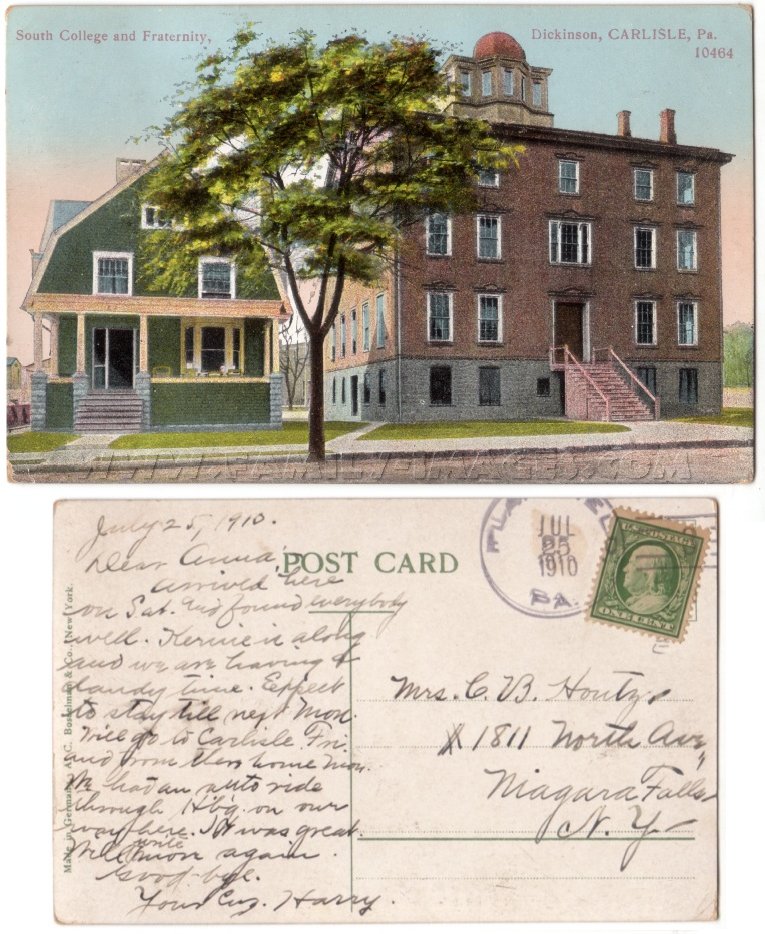 South College and Fraternity,
Dickinson, CARLISLE, Pa.
10464
WWW.FAMILY-IMAGES.COM
July 25, 1910.
Dear Anna,
POST CARD
Arrived here
on Sat. and found everybody
well. Kernie is along
and we are having a
dandy time. Expect
to stay till next Mon.
Will go to Carlisle Fri.
and from there home Mon.
We had an auto ride
through Hbg. on our
way here. It was great.
Will write more again.
Good-bye.
Your Cuz. Harry.
Made in Germany. A. C. Bosselman & Co., New York.
JUL
25
1910
PA.
U.S. POSTAGE
ONE CENT
Mrs. C. B. Houtz,
1811 North Ave,
Niagara Falls
N. Y.